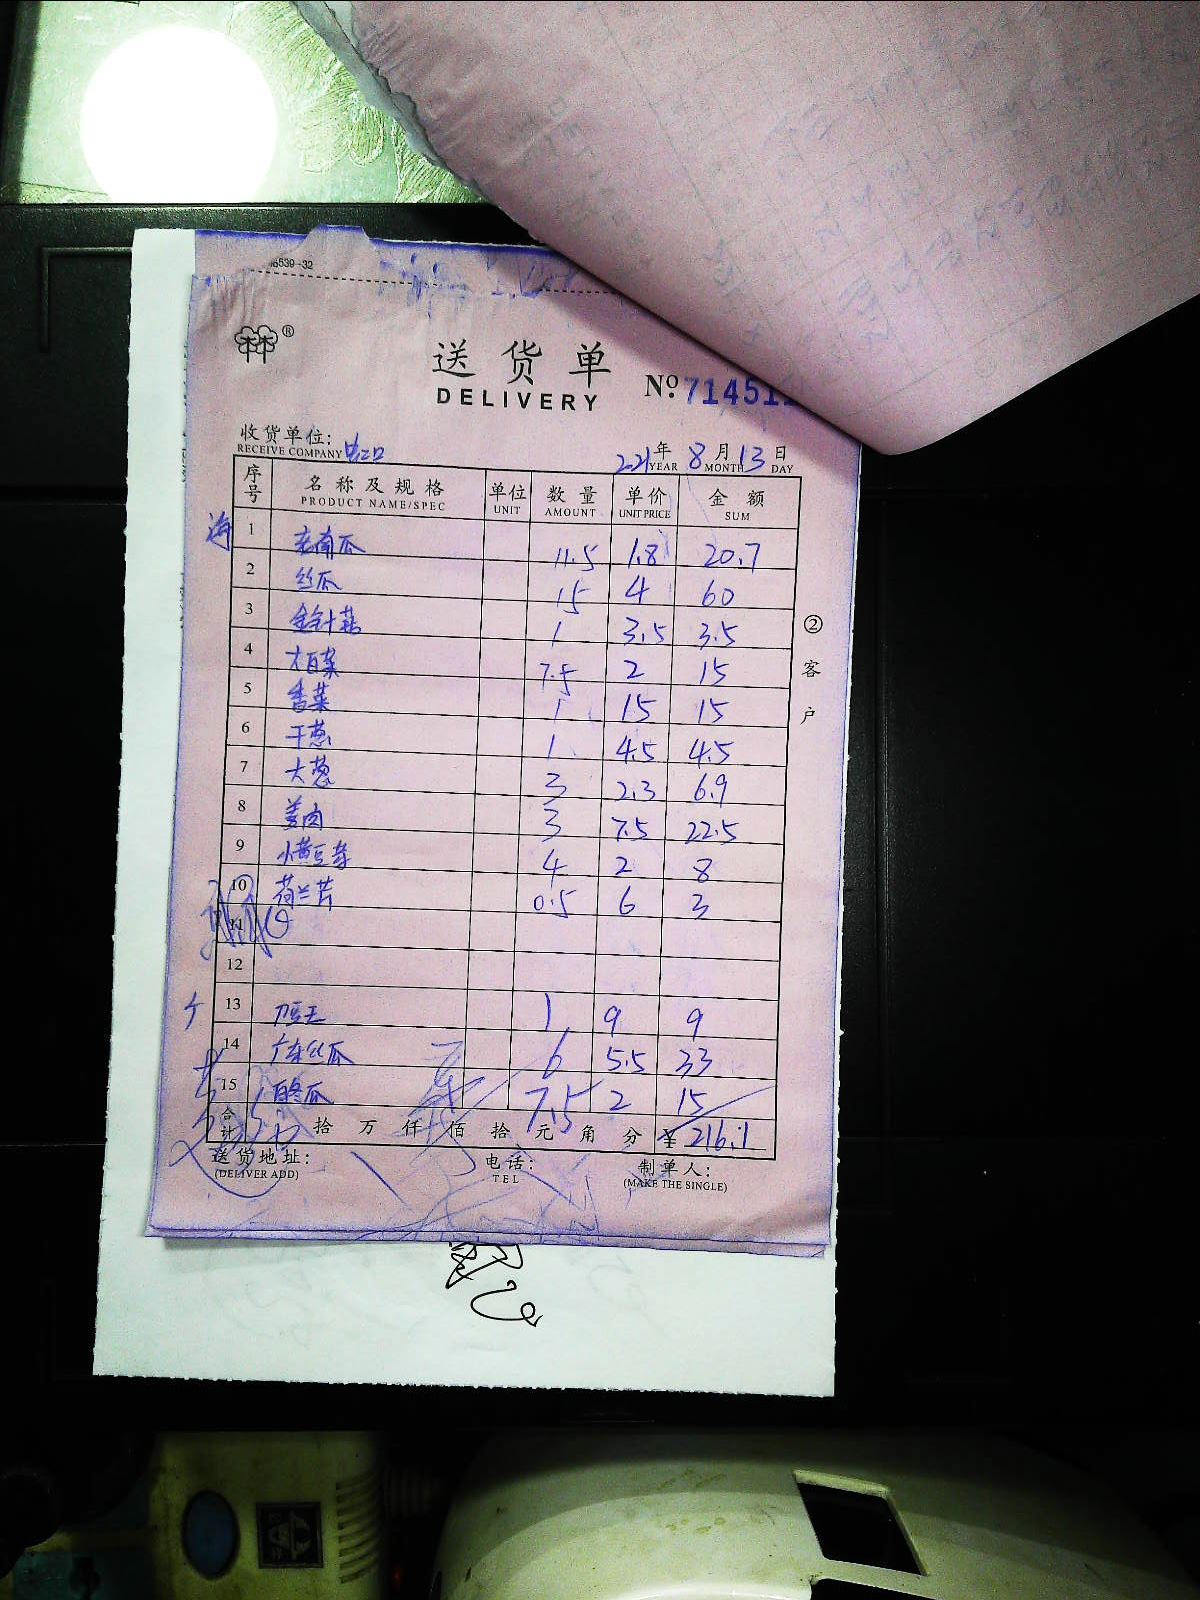 16539-32
林林®
送货单
DELIVERY
№ 714511
收货单位: 虹口
RECEIVE COMPANY
2021年 8月 13日
YEAR MONTH DAY
序号 名称及规格 单位 数量 单价 金额
PRODUCT NAME/SPEC UNIT AMOUNT UNIT PRICE SUM
海
1 老南瓜 11.5 1.8 20.7
2 丝瓜 15 4 60
3 金针菇 1 3.5 3.5
4 大白菜 7.5 2 15
5 香菜 1 15 15
6 干葱 1 4.5 4.5
7 大葱 3 2.3 6.9
8 姜肉 3 7.5 22.5
9 小黄豆芽 4 2 8
10 荷兰芹 0.5 6 3
11
12
13 刀豆王 1 9 9
14 广东丝瓜 6 5.5 33
15 白冬瓜 7.5 2 15
合计 拾万仟佰拾元角分 ¥ 216.1
送货地址: 电话: 制单人:
(DELIVER ADD) TEL (MAKE THE SINGLE)
②客户